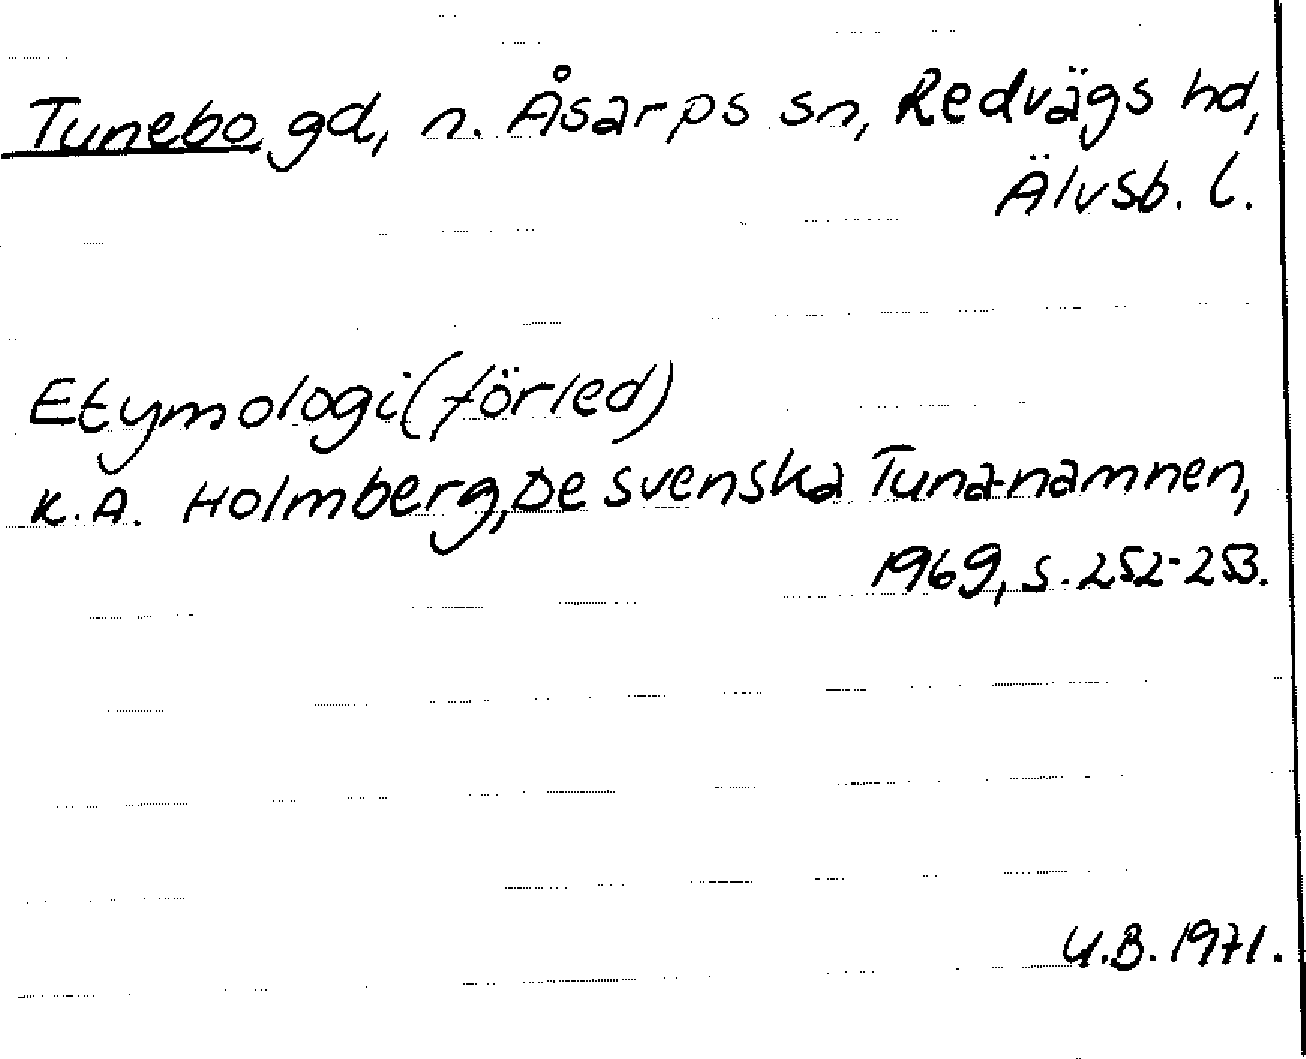 Tunebo gd, n. Åsarps sn, Redvägs hd,
Älvsb. l.
Etymologi (förled)
K.A. Holmberg, De svenska Tuna-namnen,
1969, s. 252-253.
U.B. 1971.